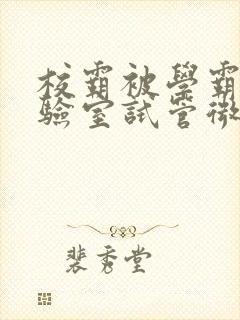 校霸被學霸
驗室試管微
裴秀堂